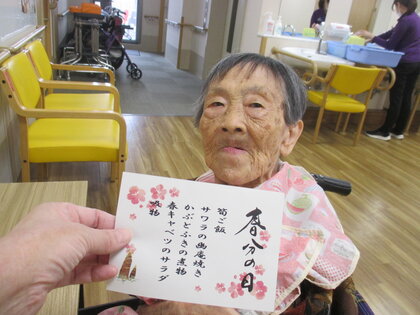 春分の日
筍ご飯
サワラの幽庵焼き
かぶとふきの煮物
春キャベツのサラダ
果物